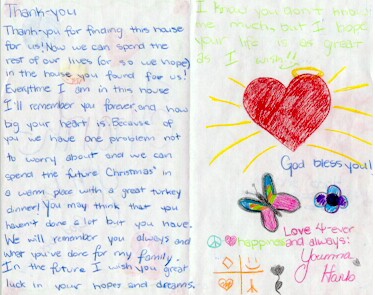 Thank-you
Thank-you for finding this house
for us! Now we can spend the
rest of our lives (or so we hope)
in the house you found for us!
Everytime I am in this house
I'll remember you forever, and how
big your heart is. Because of
you we have one problem not
to worry about and we can
spend the future Christmas' in
a warm place with a great turkey
dinner! You may think that you
haven't done a lot but you have.
We will remember you always and
what you've done for my family.
In the future I wish you great
luck in your hopes and dreams.
I know you don't know
me much, but I hope
your life is as great
as I wish!!
God bless you!
Love 4-ever
happiness and always: